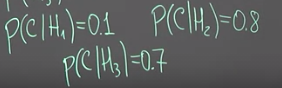 P(C|H₁)=0.1 P(C|H₂)=0.8
P(C|H₃)=0.7